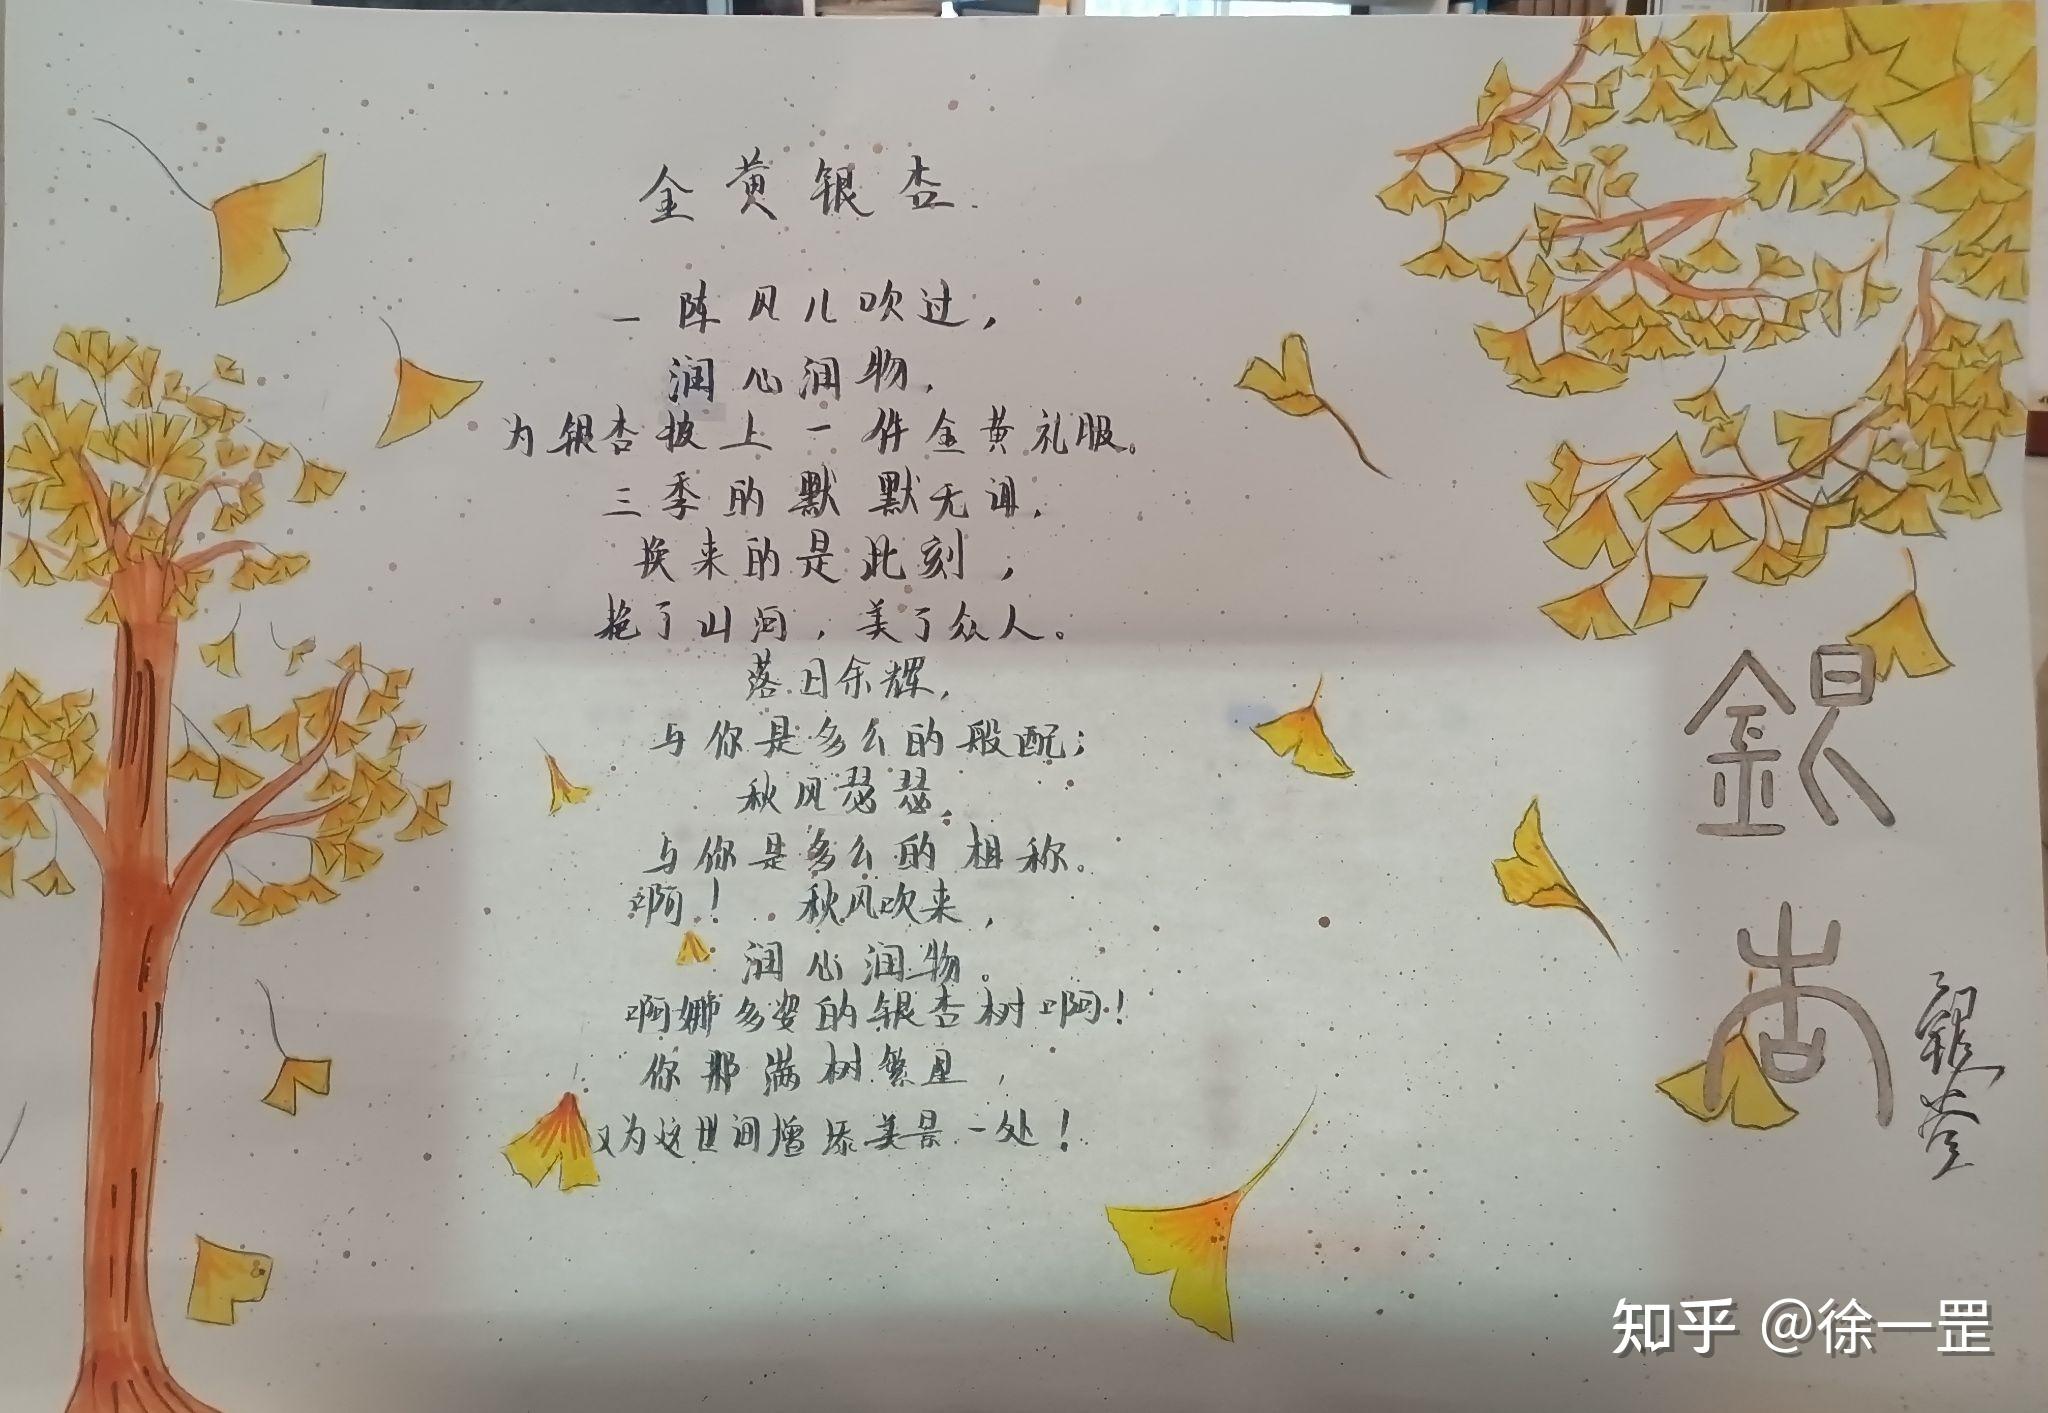 金黄银杏
一阵风儿吹过，
润心润物，
为银杏披上一件金黄礼服。
三季的默默无闻，
换来的是此刻，
艳了山河，美了众人。
落日余辉，
与你是多么的般配；
秋风瑟瑟，
与你是多么的相称。
啊！ 秋风吹来，
润心润物。
啊娜多姿的银杏树啊！
你那满树繁星，
又为这世间增添美景一处！
銀杏
银杏
知乎 @徐一罡